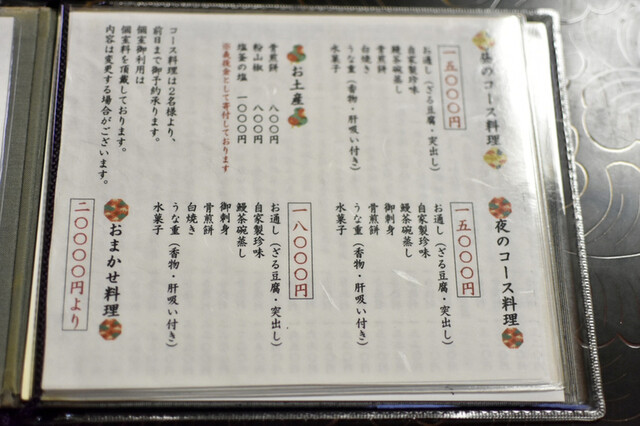 昼のコース料理
一五〇〇〇円
お通し（ざる豆腐・突出し）
自家製珍味
鰻茶碗蒸し
骨煎餅
白焼き
うな重（香物・肝吸い付き）
水菓子
お土産
骨煎餅 八〇〇円
粉山椒 八〇〇円
塩釜の塩 一〇〇〇円
コース料理は２名様より、
前日まで御予約承ります。
個室御利用は
個室料を頂戴しております。
内容は変更する場合がございます。
夜のコース料理
一五〇〇〇円
お通し（ざる豆腐・突出し）
自家製珍味
鰻茶碗蒸し
御刺身
骨煎餅
うな重（香物・肝吸い付き）
水菓子
一八〇〇〇円
お通し（ざる豆腐・突出し）
自家製珍味
鰻茶碗蒸し
御刺身
骨煎餅
白焼き
うな重（香物・肝吸い付き）
水菓子
おまかせ料理
二〇〇〇〇円より